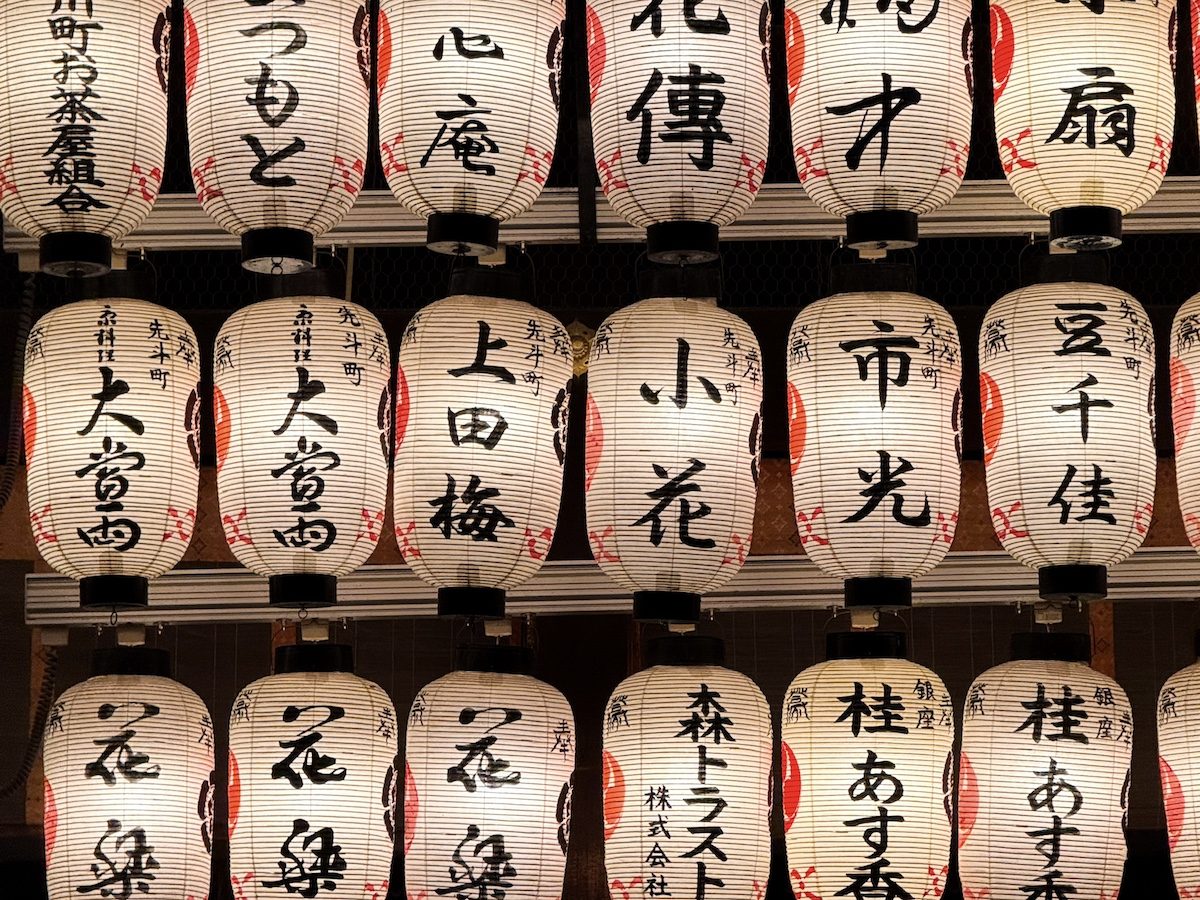 川町お茶屋組合
つもと
心庵
花傳
才
扇
京料理
大當両
先斗町
奉
京料理
大當両
先斗町
奉
上田梅
先斗町
奉
小花
先斗町
市光
先斗町
奉
豆千佳
先斗町
奉
花
奉
花
花
奉
森トラスト
株式会社
桂あす香
銀座
奉
桂あす香
銀座
奉